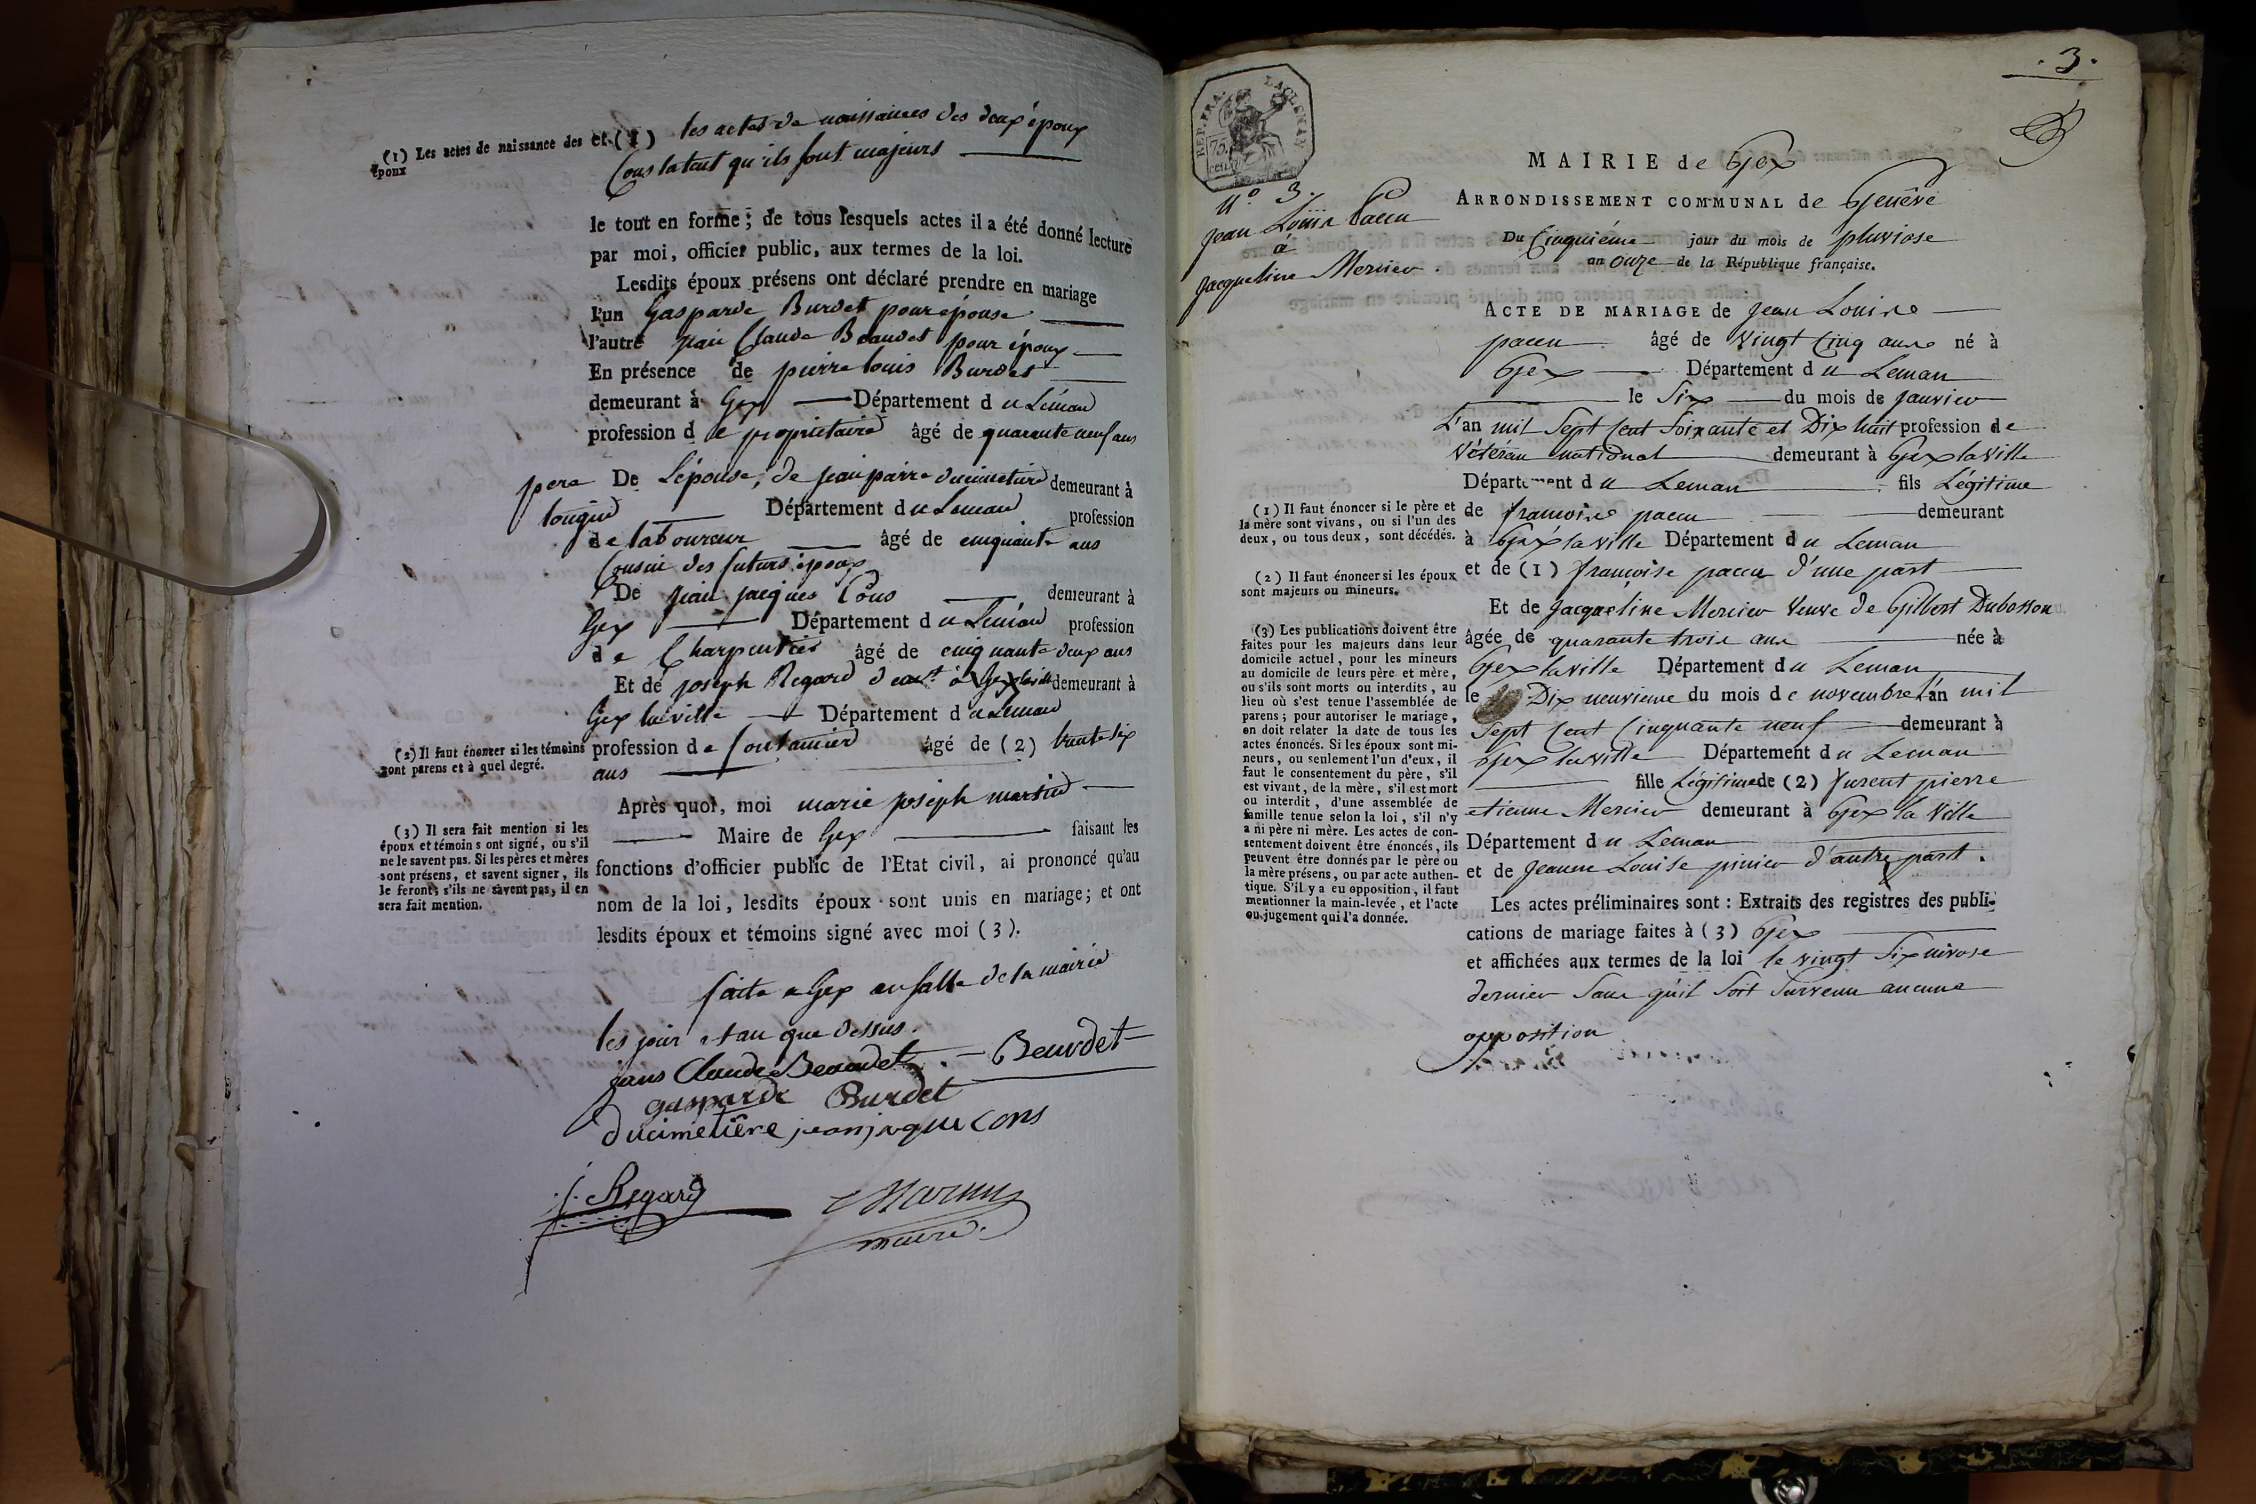 (1) Les actes de naissance des
époux
et (1) les actes de naissances des deux époux
Constatent qu'ils sont majeurs
le tout en forme; de tous lesquels actes il a été donné lecture
par moi, officier public, aux termes de la loi.
Lesdits époux présens ont déclaré prendre en mariage
l'un Gasparde Burdet pour épouse
l'autre jean Claude Beaudet pour époux
En présence de pierre louis Burdet
demeurant à Gex Département du Léman
profession de propriétaire âgé de quarante neuf ans
pere De L'épouse, de jean pierre ducimetière demeurant à
Département du Leman profession
de laboureur âgé de cinquante ans
Cousin des futurs époux
De jean jacques Cons demeurant à
Gex Département du Léman profession
de Charpentier âgé de cinquante deux ans
Et de joseph Regard à Gex la ville demeurant à
Gex la ville Département du Leman
(2) Il faut énoncer si les témoins
sont parens et à quel degré.
profession de âgé de (2) trente six
ans
Après quoi, moi marie joseph martin
Maire de Gex faisant les
(3) Il sera fait mention si les
époux et témoins ont signé, ou s'il
ne le savent pas. Si les pères et mères
sont présens, et savent signer, ils
le feront; s'ils ne savent pas, il en
sera fait mention.
fonctions d'officier public de l'Etat civil, ai prononcé qu'au
nom de la loi, lesdits époux sont unis en mariage; et ont
lesdits époux et témoins signé avec moi (3).
faite a Gex en salle de la mairie
les jour et an que dessus.
jans Claude Beaudet Beurdet
gasparde Burdet
Ducimetière jean jaque cons
j. Regard Martin
maire
.3.
REP. FRA.
75
cent.
N.o 3.
Jean Louis Paccu
à
Jacqueline Mercier
MAIRIE de Gex
ARRONDISSEMENT COMMUNAL de Genève
Du Cinquième jour du mois de pluviose
an onze de la République française.
ACTE DE MARIAGE de Jean Louis
paccu âgé de vingt Cinq ans né à
Gex Département du Leman
le Six du mois de janvier
L'an mil Sept Cent Soixante et Dix huit profession de
Vétéran national demeurant à Gex la ville
Département du Leman fils Légitime
(1) Il faut énoncer si le père et
la mère sont vivans, ou si l'un des
deux, ou tous deux, sont décédés.
de françois paccu demeurant
à Gex la ville Département du Leman
et de (1) françoise paccu d'une part
(2) Il faut énoncer si les époux
sont majeurs ou mineurs.
Et de Jacqueline Mercier Veuve de Gilbert Dubosson
âgée de quarante trois ans née à
Gex la ville Département du Leman
le Dix neuvieme du mois de novembre l'an mil
Sept Cent Cinquante neuf demeurant à
Gex la ville Département du Leman
fille Légitime de (2) furent pierre
etienne Mercier demeurant à Gex la Ville
Département du Leman
et de Jeanne Louise pinier d'autre part.
(3) Les publications doivent être
faites pour les majeurs dans leur
domicile actuel, pour les mineurs
au domicile de leurs père et mère,
ou s'ils sont morts ou interdits, au
lieu où s'est tenue l'assemblée de
parens; pour autoriser le mariage,
on doit relater la date de tous les
actes énoncés. Si les époux sont mi-
neurs, ou seulement l'un d'eux, il
faut le consentement du père, s'il
est vivant, de la mère, s'il est mort
ou interdit, d'une assemblée de
famille tenue selon la loi, s'il n'y
a ni père ni mère. Les actes de con-
sentement doivent être énoncés, ils
peuvent être donnés par le père ou
la mère présens, ou par acte authen-
tique. S'il y a eu opposition, il faut
mentionner la main-levée, et l'acte
ou jugement qui l'a donnée.
Les actes préliminaires sont : Extraits des registres des publi-
cations de mariage faites à (3) Gex
et affichées aux termes de la loi le vingt Six nivose
dernier Sans qu'il Soit Survenu aucune
opposition